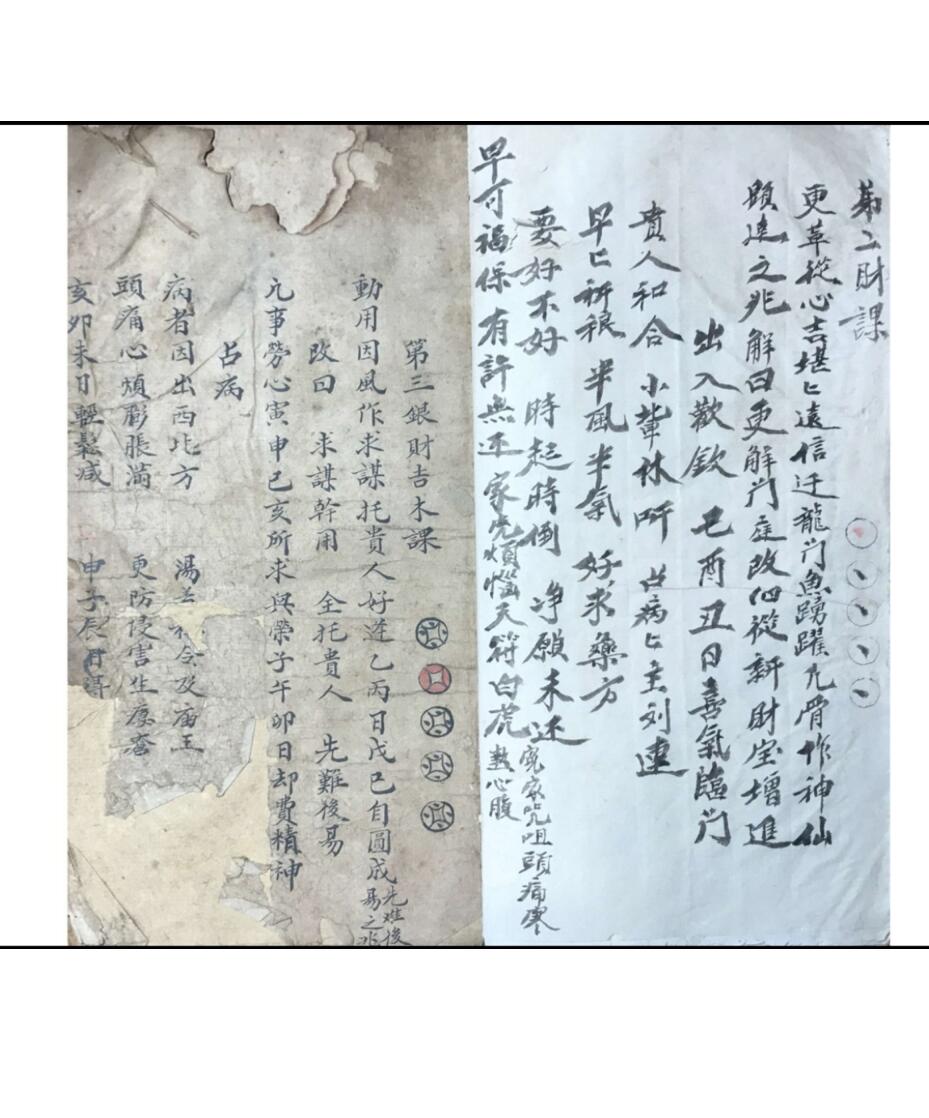 第二財課
更革從心吉堪匕遠信迁龍门魚踴躍凢骨作神仙
顕達之兆解曰更解门庭改旧從新財宝增進
出入歡欽巳酉丑日喜氣臨门
貴人和合小輩休听占病匕主刘連
早匕祈禳半風半氣好求藥方
要好不好時起時倒净願未还冤家咒咀頭痛寒
早可福保有許無还家先煩惱天符白虎熱心腹
第三銀財吉木課
動用因風作求謀托貴人好逆乙丙日戊己自圓成先难後易之兆
改曰求謀幹用全托貴人先難後易
凢事勞心寅申巳亥所求與榮子午卯日却費精神
占病
病者因出西北方湯令及庙王
頭痛心煩膨脹滿更防侵害生麻瘡
亥卯未日輕鬆减申子辰日得